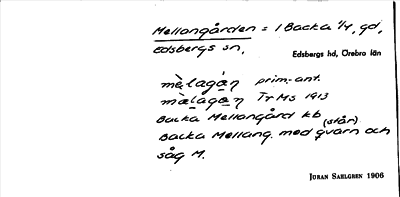 Mellangården = 1 Backa 1/4, gd,
Edsbergs sn,
Edsbergs hd, Örebro län
mèlagá̱n prim.-ant.
mèlagạn Tr Ms 1913
Backa Mellangård kb
(står)
Backa Mellang. med qvarn och
såg M.
JURAN SAHLGREN 1906